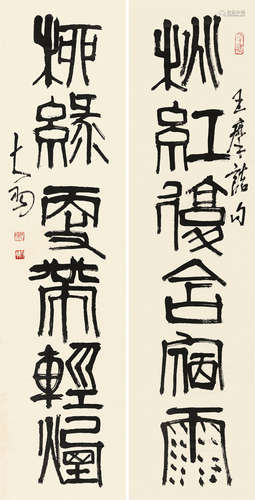 桃紅復含宿雨
王摩詰句
柳綠更帶輕煙
大羽